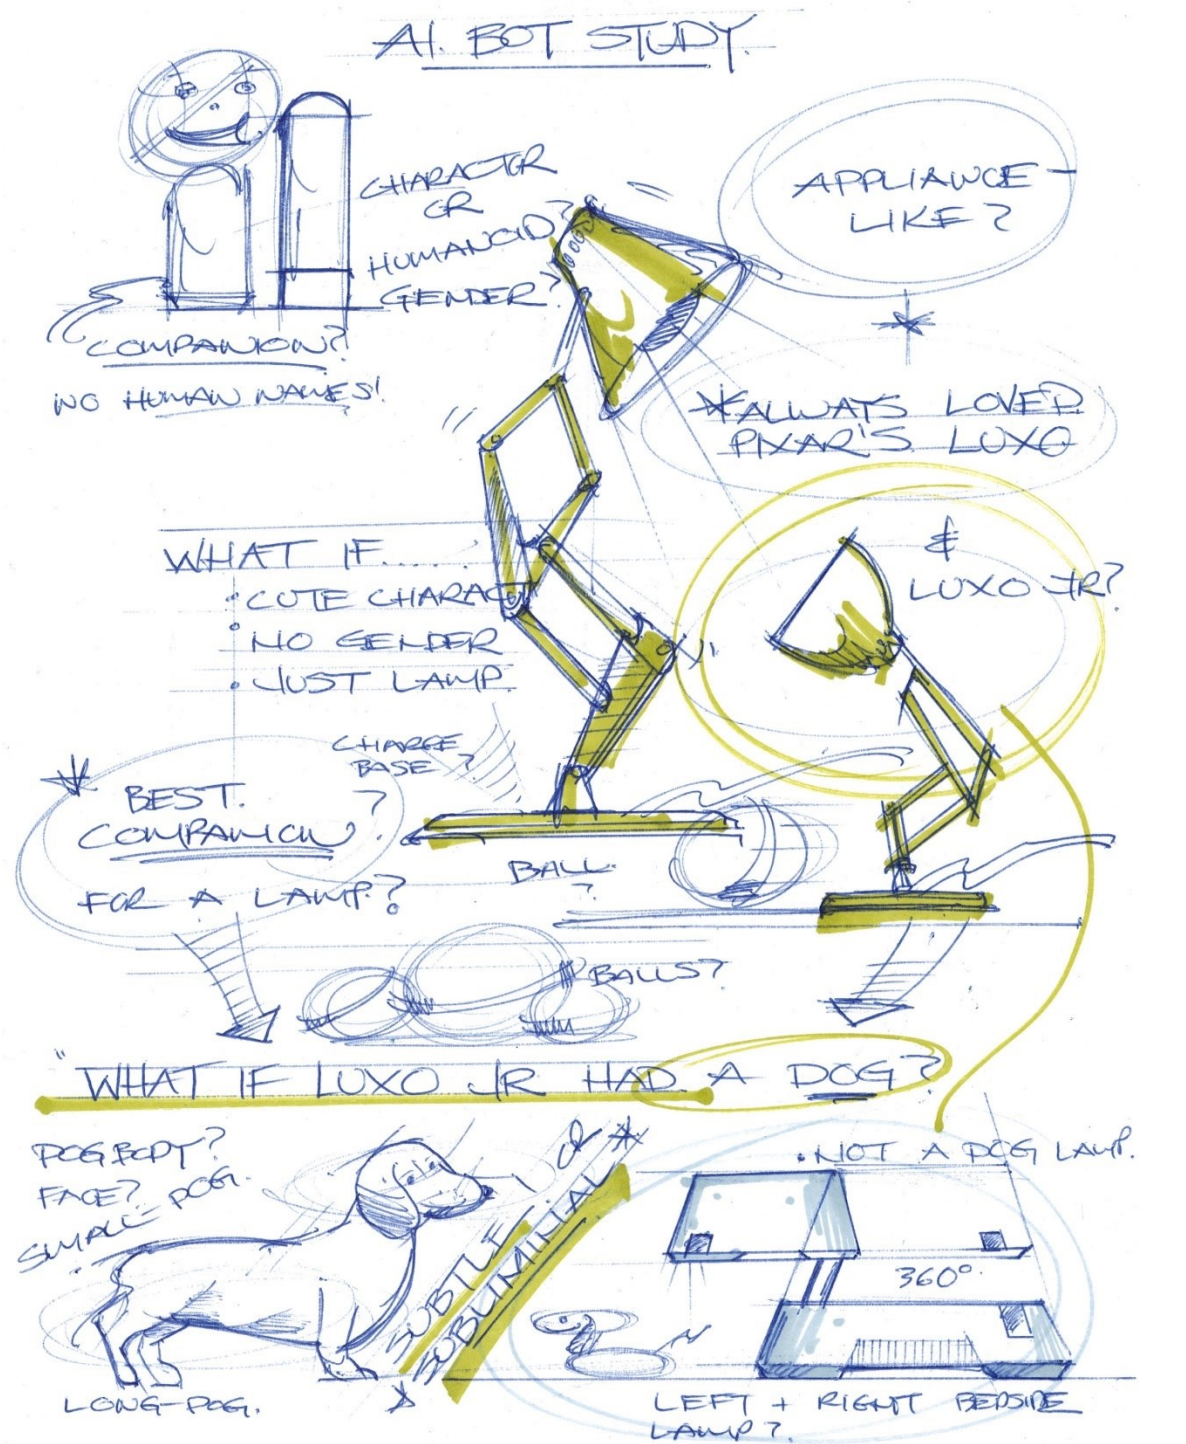 A.I. BOT STUDY.
CHARACTER
OR
HUMANOID?
GENDER?
APPLIANCE-
LIKE?
COMPANION?
NO HUMAN NAMES!
*ALWAYS LOVED
PIXAR'S LUXO
&
LUXO JR?
WHAT IF.....
• CUTE CHARACT
• NO GENDER
• JUST LAMP.
CHARGE
BASE?
BEST.
COMPANION?
FOR A LAMP?
BALL.
?
BALLS?
"WHAT IF LUXO JR HAD A DOG?
DOG BODY?
FACE?
SMALL DOG.
& *
SUBTLE
SUBLIMINAL
LONG-DOG.
• NOT A DOG LAMP.
360°.
LEFT + RIGHT BEDSIDE
LAMP?.